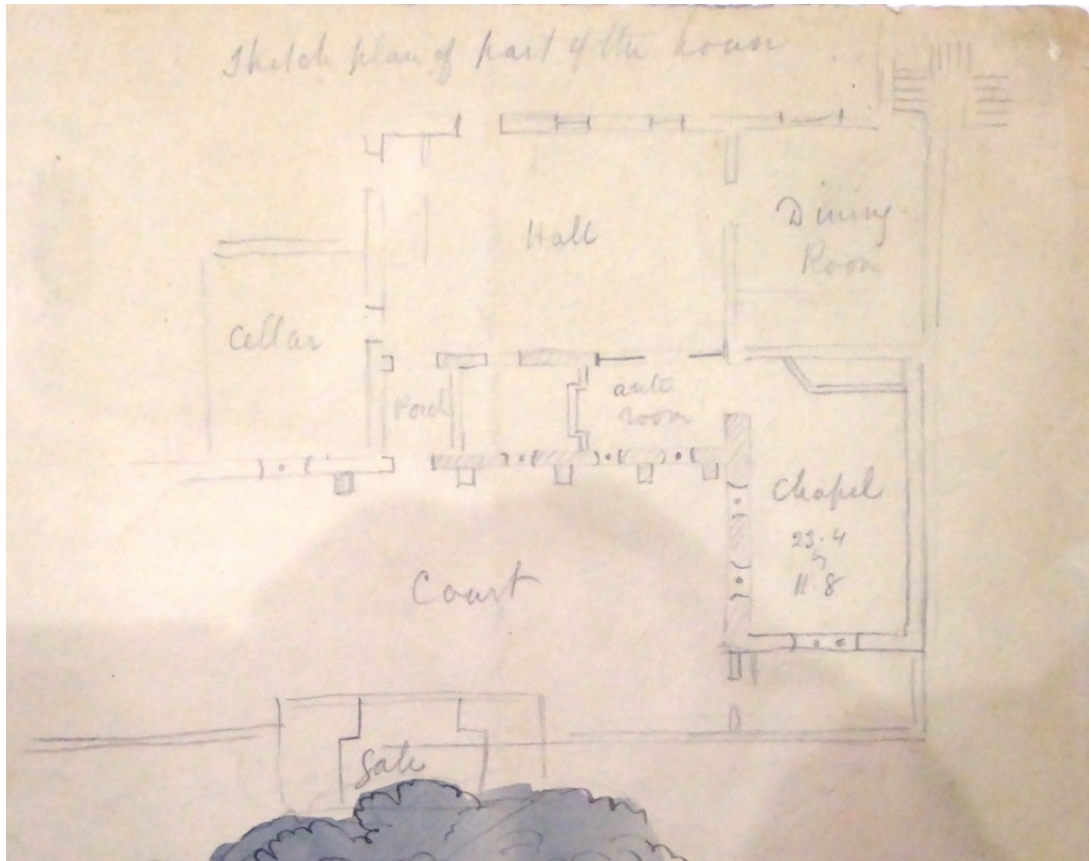 Sketch plan of part of the house
Hall
Dining
Room
Cellar
Porch
ante
room
Chapel
23.4
by
11.8
Court
Gate